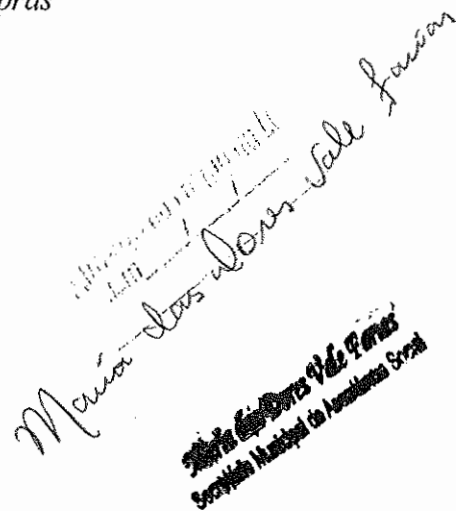 Maria das Dores Vale Farias
Maria das Dores Vale Farias
Secretária Municipal de Assistência Social